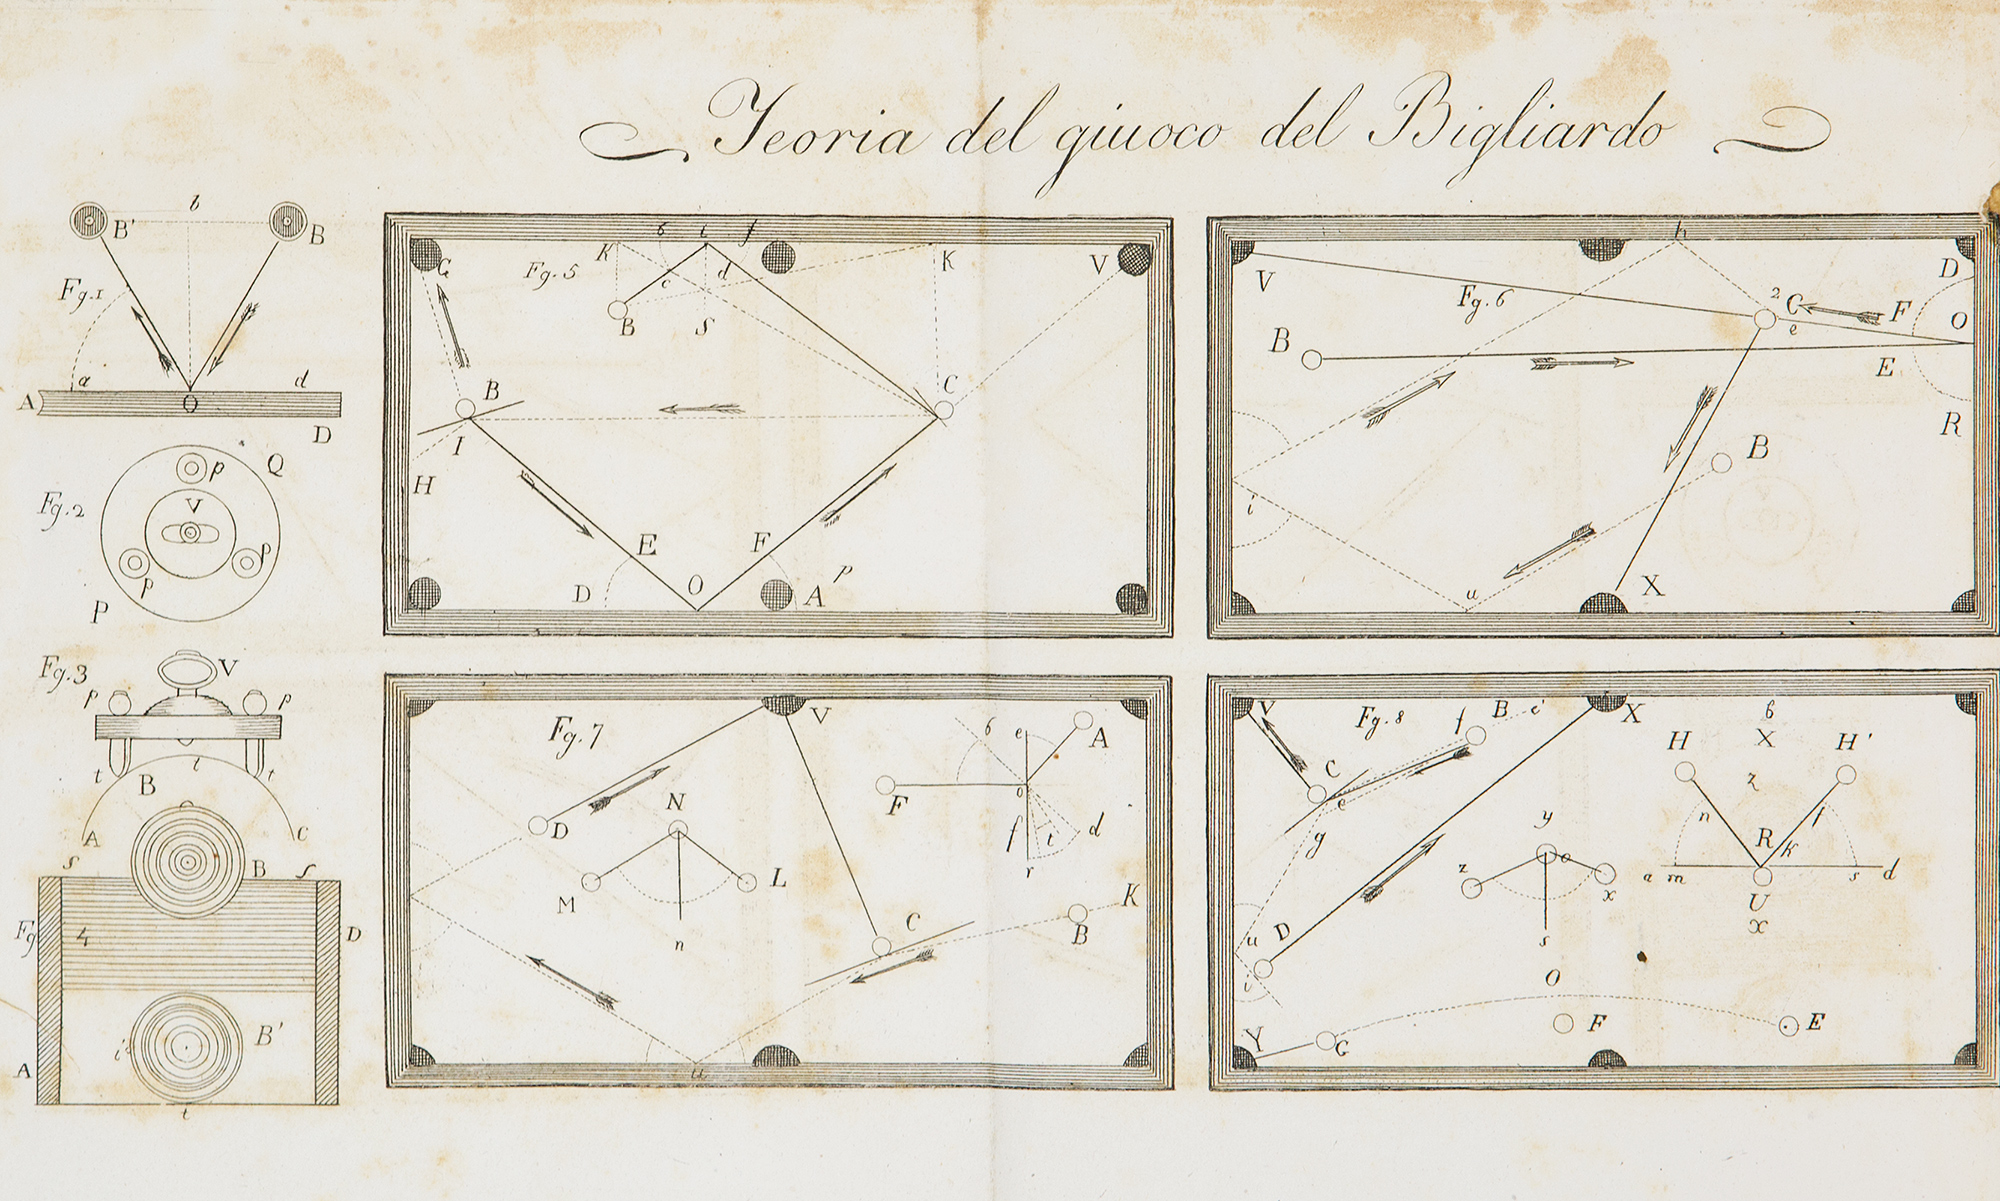 Teoria del giuoco del Bigliardo
b
B'
B
Fg.1
a
d
A
O
D
Fg.2
p
Q
V
p
p
P
Fg.3
V
p
p
t
l
t
B
A
C
s
B
s
Fg
4
D
i
B'
A
t
G
K
6
i
f
K
V
Fg.5
c
d
B
S
B
C
I
H
E
F
D
O
A
p
h
V
D
Fg.6
2
C
F
e
O
B
E
R
B
i
u
X
Fg.7
V
6
e
A
D
N
F
o
f
t
d
r
M
L
n
C
K
B
u
V
Fg.8
f
B
c'
X
6
H
X
H'
C
e
z
g
n
f
y
R
K
z
o
x
a
m
s
d
U
x
u
D
i
s
O
Y
G
F
E